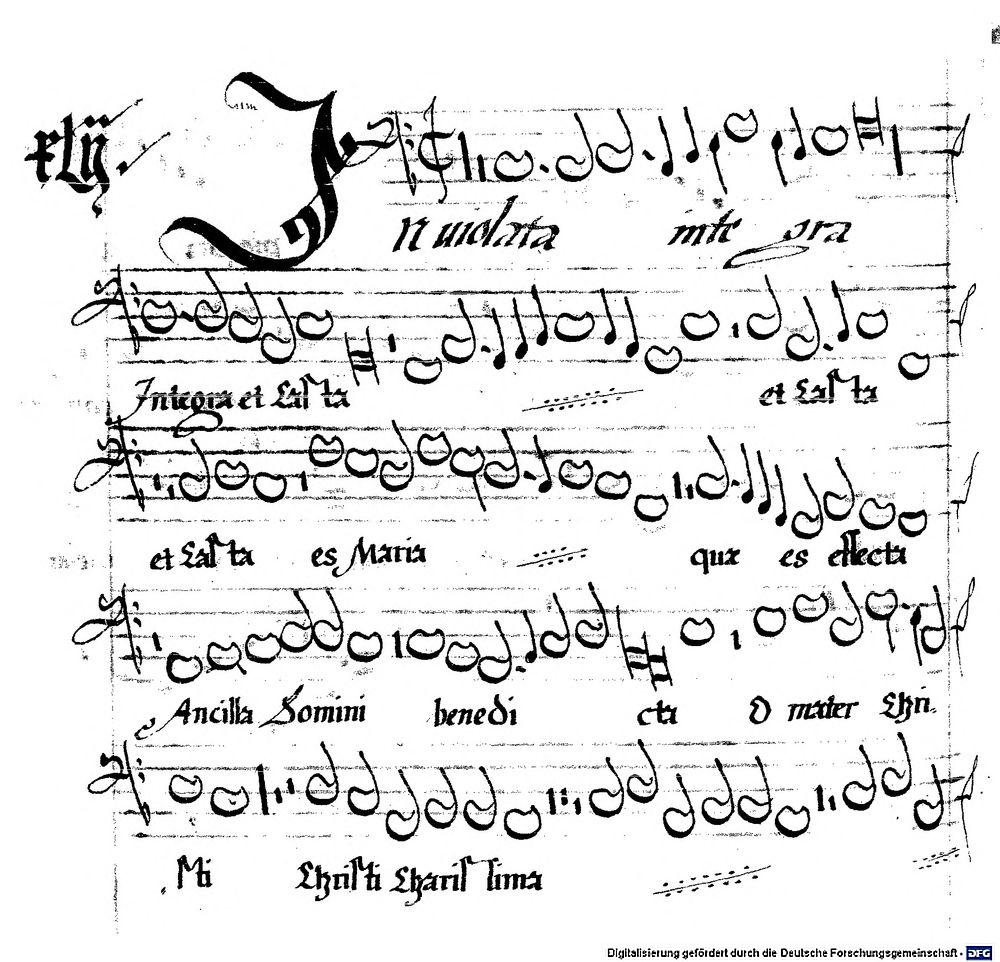 xlij.
Inuiolata inte gra
Integra et Casta et Casta
et Casta es Maria quæ es effecta
Ancilla Domini benedi cta O mater Chri
sti Christi Charissima
Digitalisierung gefördert durch die Deutsche Forschungsgemeinschaft - DFG